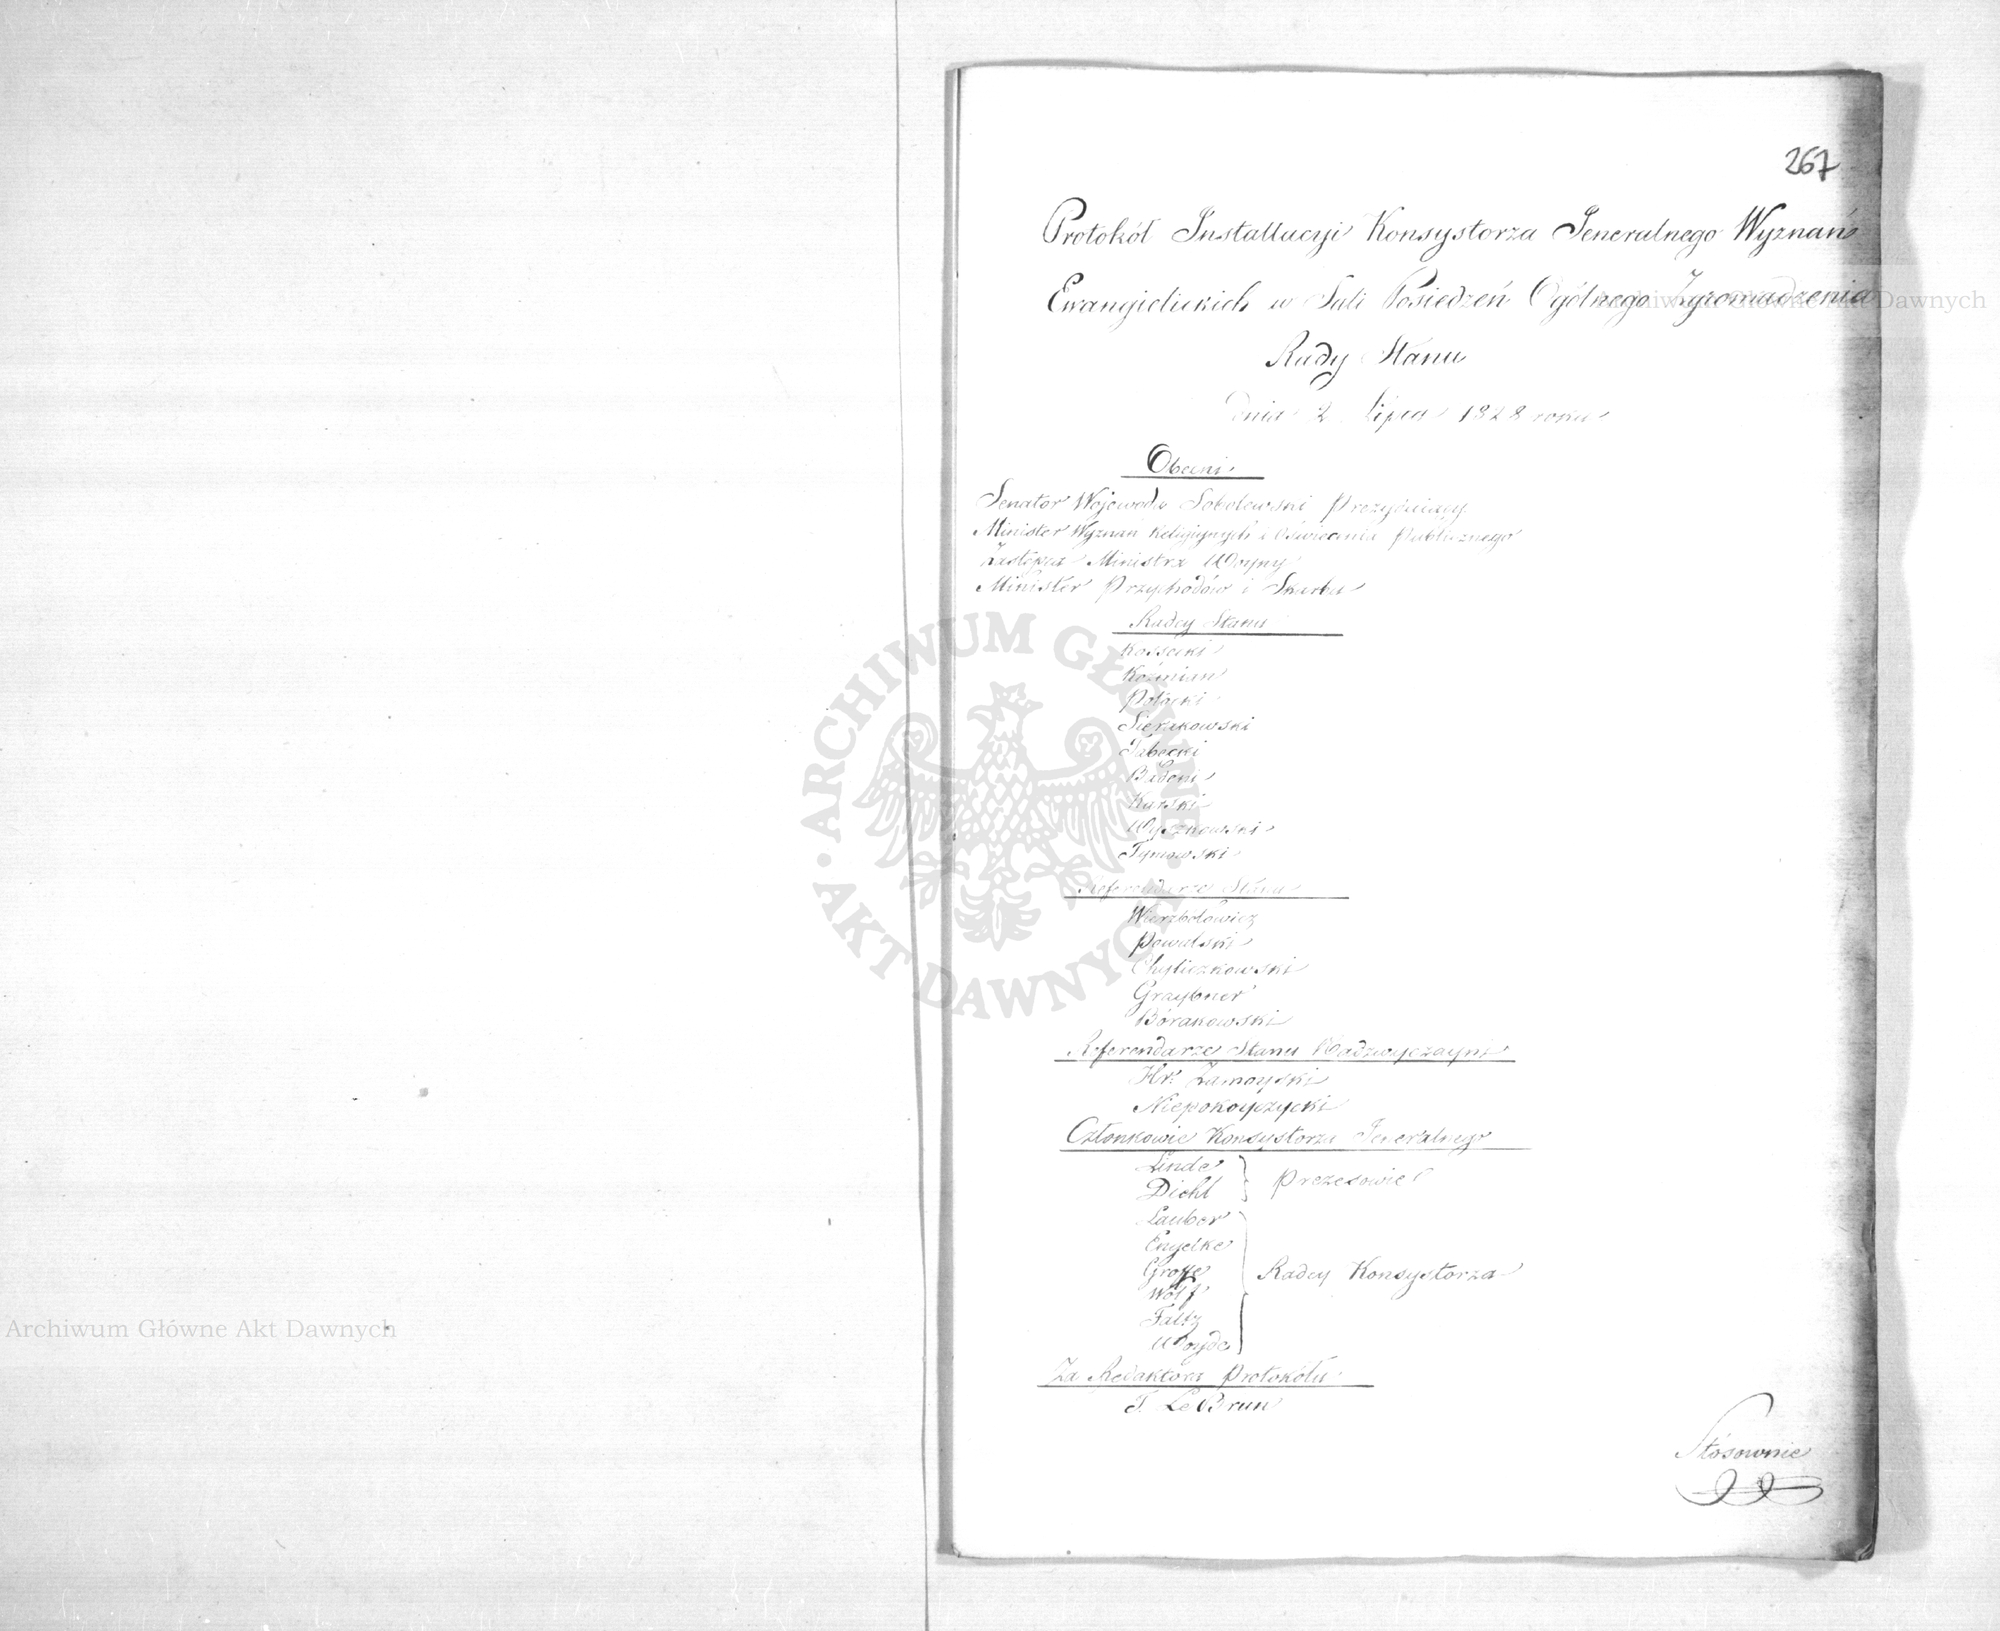 267
Protokół Installacyi Konsystorza Jeneralnego Wyznań
Ewangielickich w Sali Posiedzeń Ogólnego Zgromadzenia
Rady Stanu
dnia 2 Lipca 1828 roku
Obecni
Senator Wojewoda Sobolewski Prezyduiący
Minister Wyznań Religijnych i Oświecenia Publicznego
Zastępca Ministra Woyny
Minister Przychodów i Skarbu
Radcy Stanu
Kossecki
Koźmian
Potocki
Sierakowski
Badeni
Karski
Wyczkowski
Tymowski
Referendarze Stanu
Wierzbołowicz
Powalski
Chyliczkowski
Graybner
Bórakowski
Referendarze Stanu Nadzwyczayni
Hr. Zamoyski
Niepokoyczycki
Członkowie Konsystorza Jeneralnego
Linde
Diehl
Prezesowie
Lauber
Engelke
Grosse
Wolf
Faltz
Woyde
Radcy Konsystorza
Za Redaktora Protokółu
J. Le Brun
Stósownie
Archiwum Główne Akt Dawnych
Archiwum Główne Akt Dawnych
ARCHIWUM GŁÓWNE AKT DAWNYCH